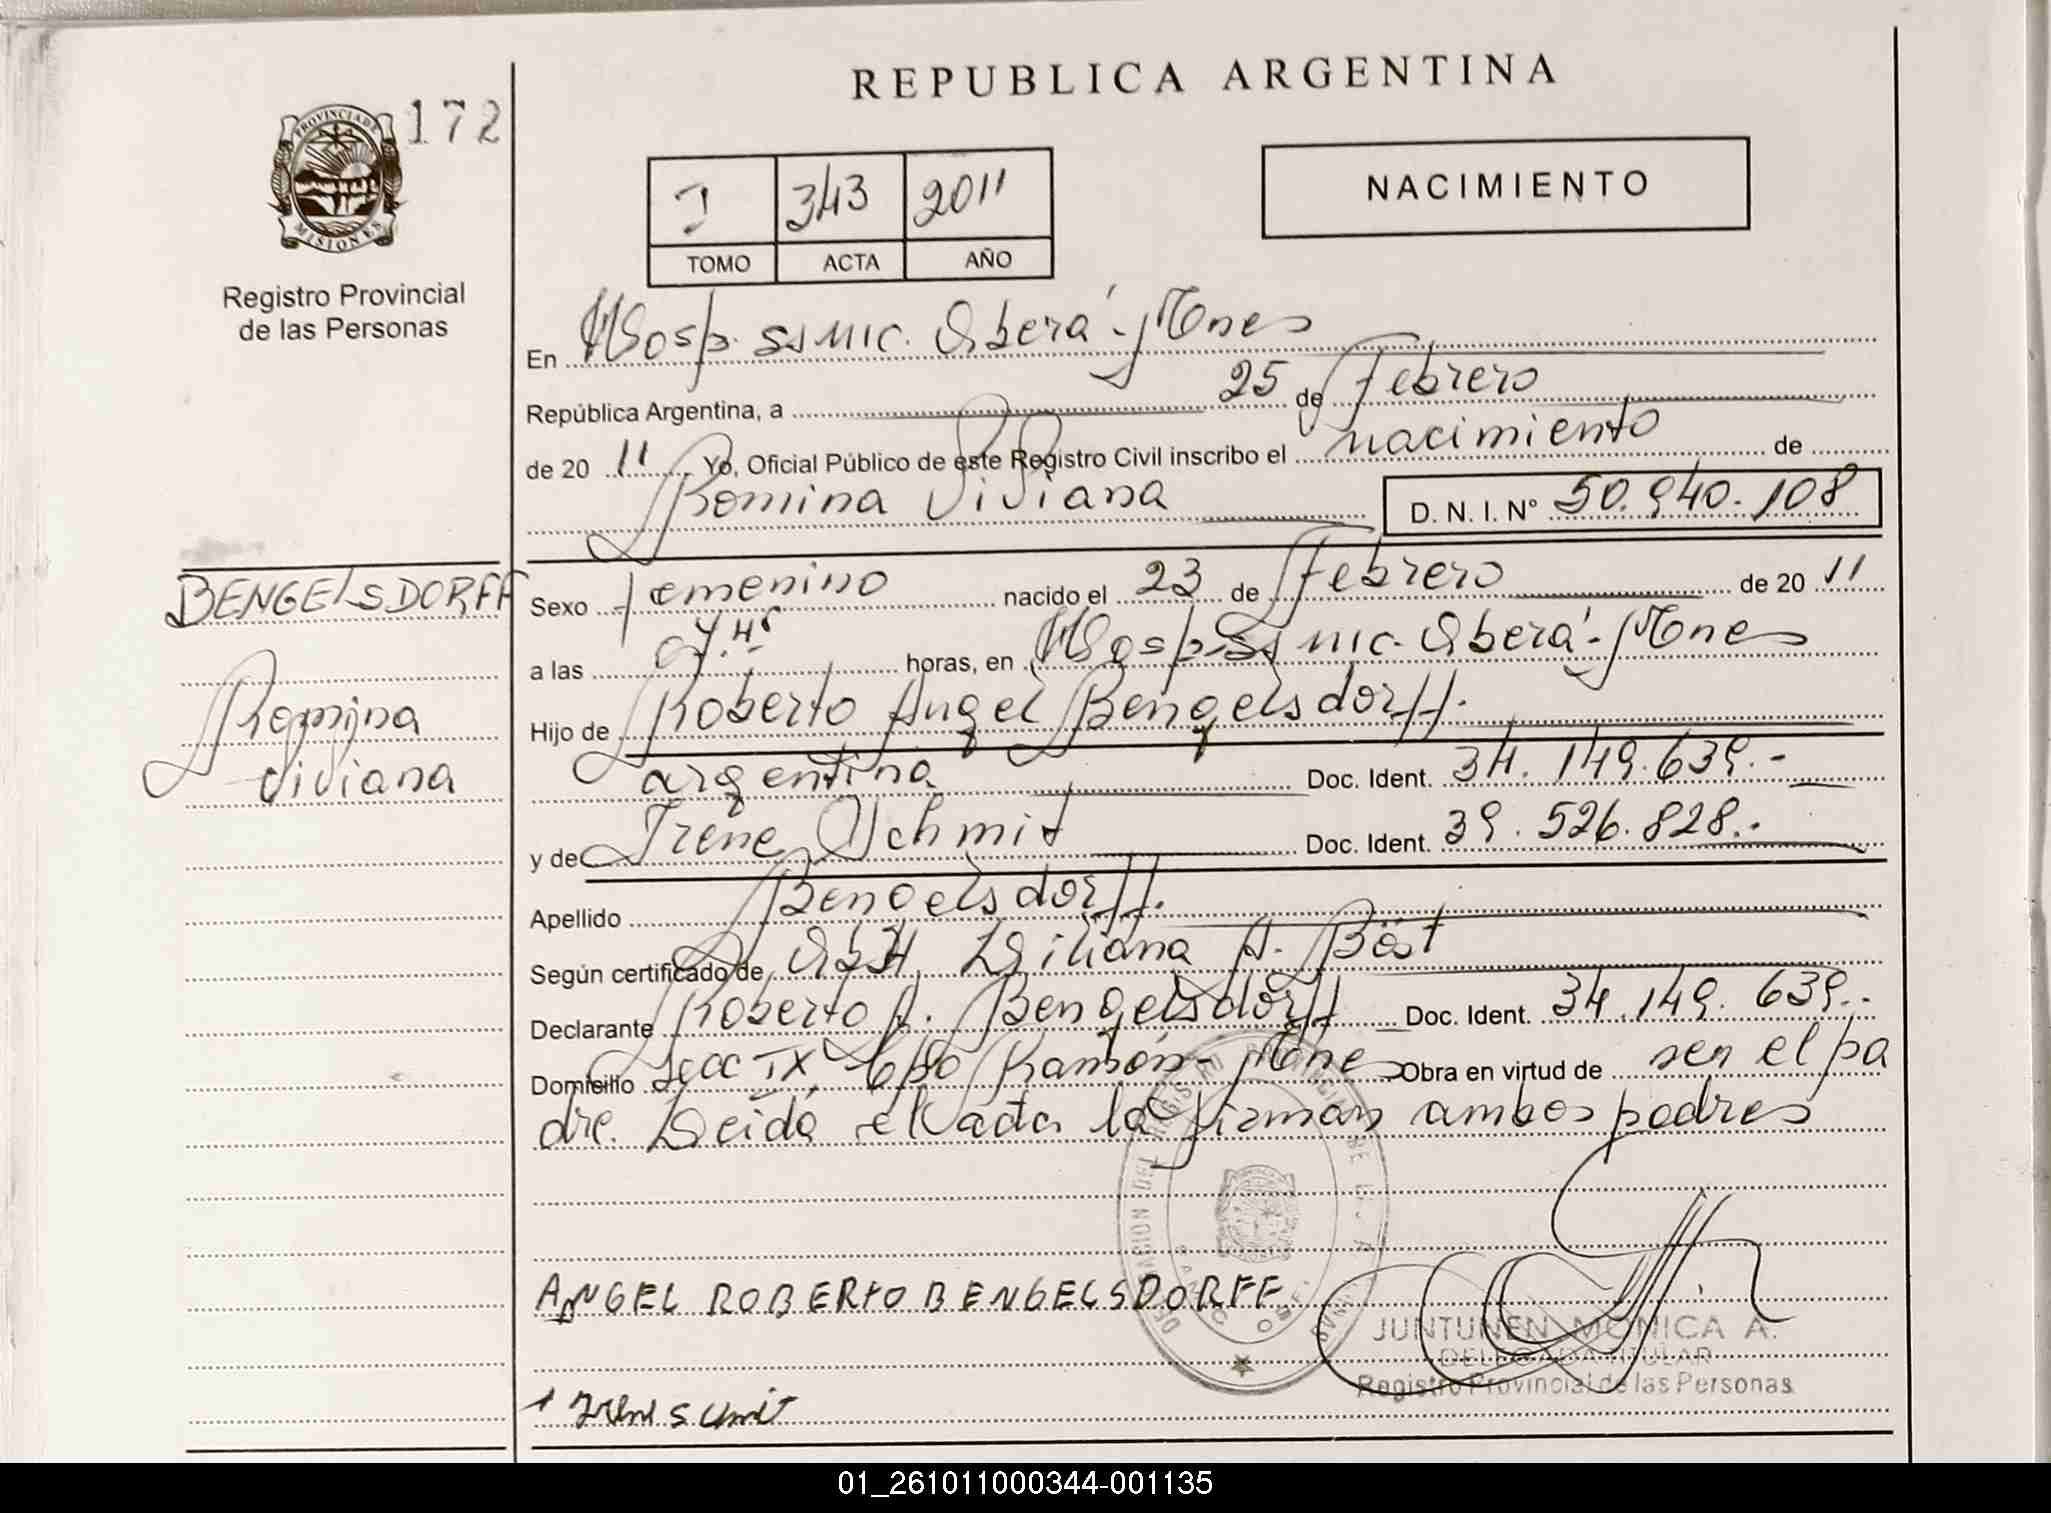 REPUBLICA ARGENTINA
172
PROVINCIA DE
MISIONES
Registro Provincial
de las Personas
I 343 2011
TOMO ACTA AÑO
NACIMIENTO
En Hosp. SS MIC. Oberá - Mnes
República Argentina, a 25 de Febrero
de 20 11 Yo, Oficial Público de este Registro Civil inscribo el nacimiento de
Romina Viviana D. N. I. Nº 50.940.108
BENGELSDORFF
Romina
Viviana
Sexo femenino nacido el 23 de Febrero de 20 11
a las horas, en Hosp. SS MIC. Oberá - Mnes
Hijo de Roberto Angel Bengelsdorff.
argentina Doc. Ident. 34.149.639.-
y de Irene Schmit Doc. Ident. 39.526.828.-
Apellido Bengelsdorff.
Según certificado de Obst. Liliana A. Böst
Declarante Roberto A. Bengelsdorff Doc. Ident. 34.149.639.-
Domicilio Secc IX, Cpo Ramón - Mnes Obra en virtud de ser el pa
dre. Leida el acta la firman ambos padres
ANGEL ROBERTO BENGELSDORFF
JUNTUNEN MONICA A.
DELEGADA TITULAR
Registro Provincial de las Personas
01_261011000344-001135